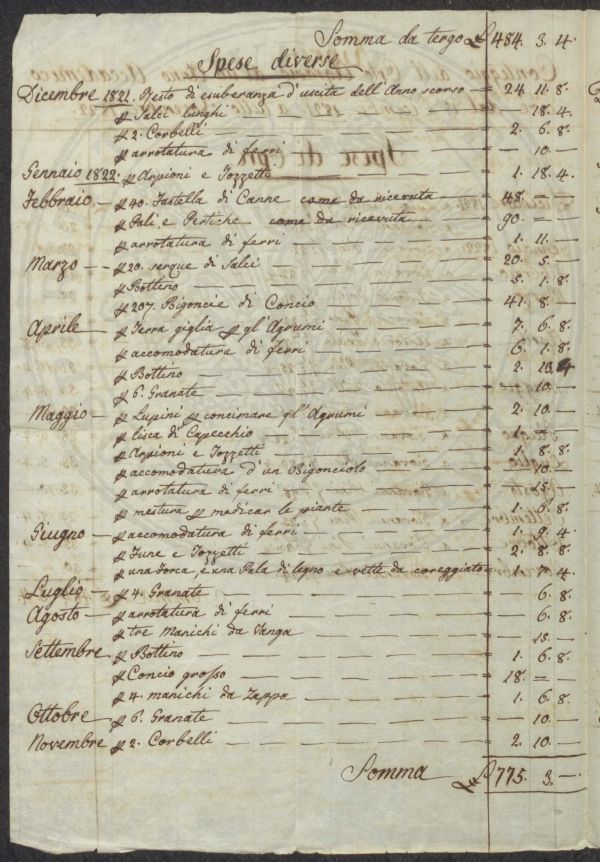 Somma da tergo £ 484. 3. 4.
Spese diverse
Dicembre 1821. Resto di esuberanza d'uscita dell'Anno scorso — 24. 11. 8.
p Salci lunghi — 18. 4.
p 2. Corbelli — 2. 6. 8.
p arrotatura di ferri — 10. —
Gennaio 1822. p Arpioni e Tozzetti — 1. 18. 4.
Febbraio — p 40. Fastella di Canne come da ricevuta — 48. — —
p Pali e Pertiche come da ricevuta — 90. — —
p arrotatura di ferri — 1. 11. —
Marzo — p 20. serque di Salci — 20. 5. —
p Bottino — 5. 1. 8.
p 207. Bigoncie di Concio — 41. 8. —
Aprile — p Terra giglia p gl'Agrumi — 7. 6. 8.
p accomodatura di ferri — 6. 1. 8.
p Bottino — 2. 10. 4
p 6. Granate — 10. —
Maggio — p Lupini p concimare gl'Agrumi — 2. 10. —
p lisca di Capecchio — 1. — —
p Arpioni e Tozzetti — 1. 8. 8.
p accomodatura d'un Bigonciolo — 10. —
p arrotatura di ferri — 15. —
p mestura p medicar le piante — 1. 6. 8.
Giugno — p accomodatura di ferri — 1. 9. 4.
p Fune e Tozzetti — 2. 8. 8.
p una Forca, e una Pala di legno e vette da coreggiato — 1. 7. 4.
Luglio — p 4. Granate — 6. 8.
Agosto — p arrotatura di ferri — 6. 8.
p tre Manichi da Vanga — 15. —
Settembre p Bottino — 1. 6. 8.
p Concio grosso — 18. — —
p 4. manichi da Zappa — 1. 6. 8.
Ottobre — p 6. Granate — 10. —
Novembre p 2. Corbelli — 2. 10. —
Somma £ 775. 3. —